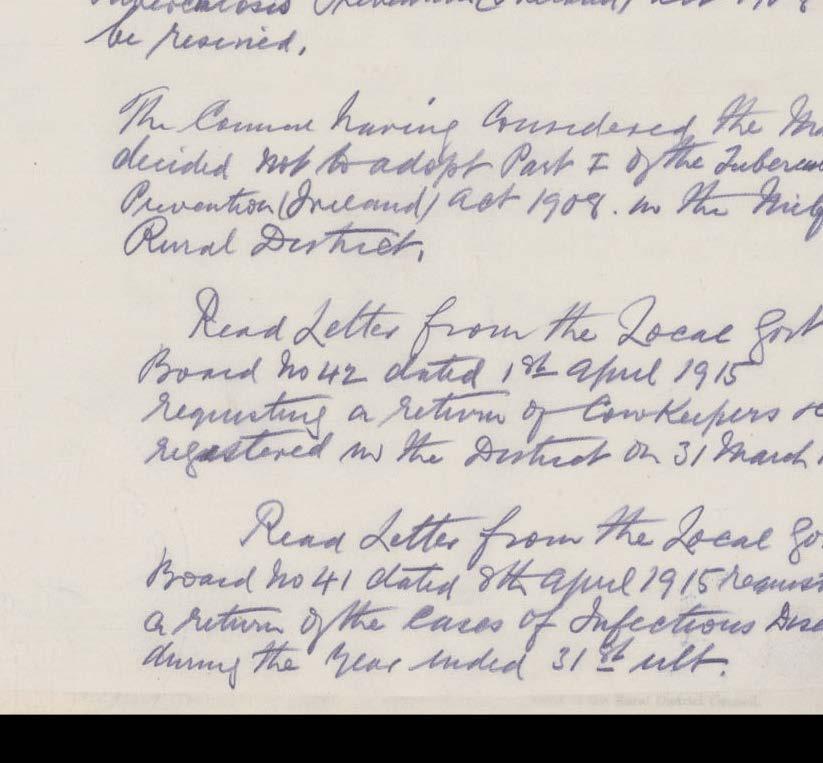 Tuberculosis Prevention (Ireland) Act 1908
be rescinded.
The Council having Considered the
decided not to adopt Part I of the Tubercu
Prevention (Ireland) Act 1908. in the
Rural District.
Read Letter from the Local Govt
Board No 42 dated 1st April 1915
requesting a return of CowKeepers &c
registered in the District on 31 March
Read Letter from the Local Go
Board No 41 dated 8th April 1915 request
a return of the Cases of Infectious Dise
during the Year ended 31st ult.
Rural District Council.